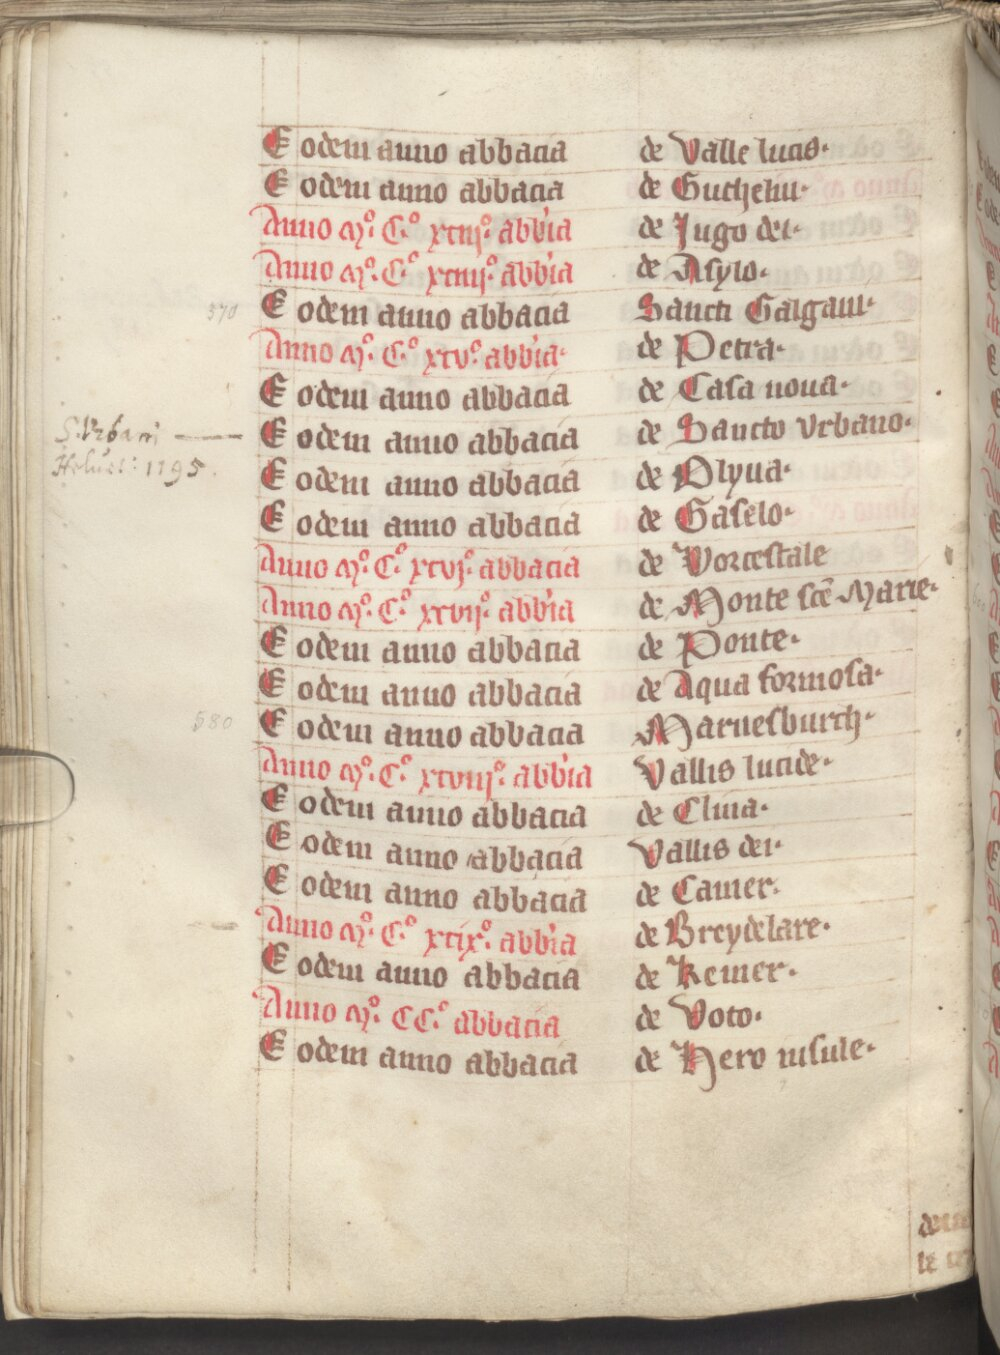 Eodem anno abbacia de Valle lucis·
Eodem anno abbacia de Guchehu·
Anno Mº· Cº· xciijº· abb'ia de Jugo dei·
Anno Mº· Cº· xciiijº· abb'ia de Asylo·
570 Eodem anno abbacia Sancti Galgani·
Anno Mº· Cº· xcvº· abb'ia· de Petra·
Eodem anno abbacia de Casa noua·
S. Vrbani
Eodem anno abbacia de Sancto Vrbano·
Heluet: 1195.
Eodem anno abbacia de Olyua·
Eodem anno abbacia de Gaselo·
Anno Mº· Cº· xcvjº· abbacia de Vorcestale
Anno Mº· Cº· xcvijº· abb'ia de Monte scē Marie·
Eodem anno abbacia de Ponte·
Eodem anno abbacia de Aqua formosa·
580 Eodem anno abbacia Marnesburch·
Anno Mº· Cº· xcviijº· abb'ia Vallis lucide·
Eodem anno abbacia de Cliua·
Eodem anno abbacia Vallis dei·
Eodem anno abbacia de Camer·
Anno Mº· Cº· xcixº· abb'ia de Breydelare·
Eodem anno abbacia de Kemer·
Anno Mº· CCº· abbacia de Voto·
Eodem anno abbacia de Hero insule·